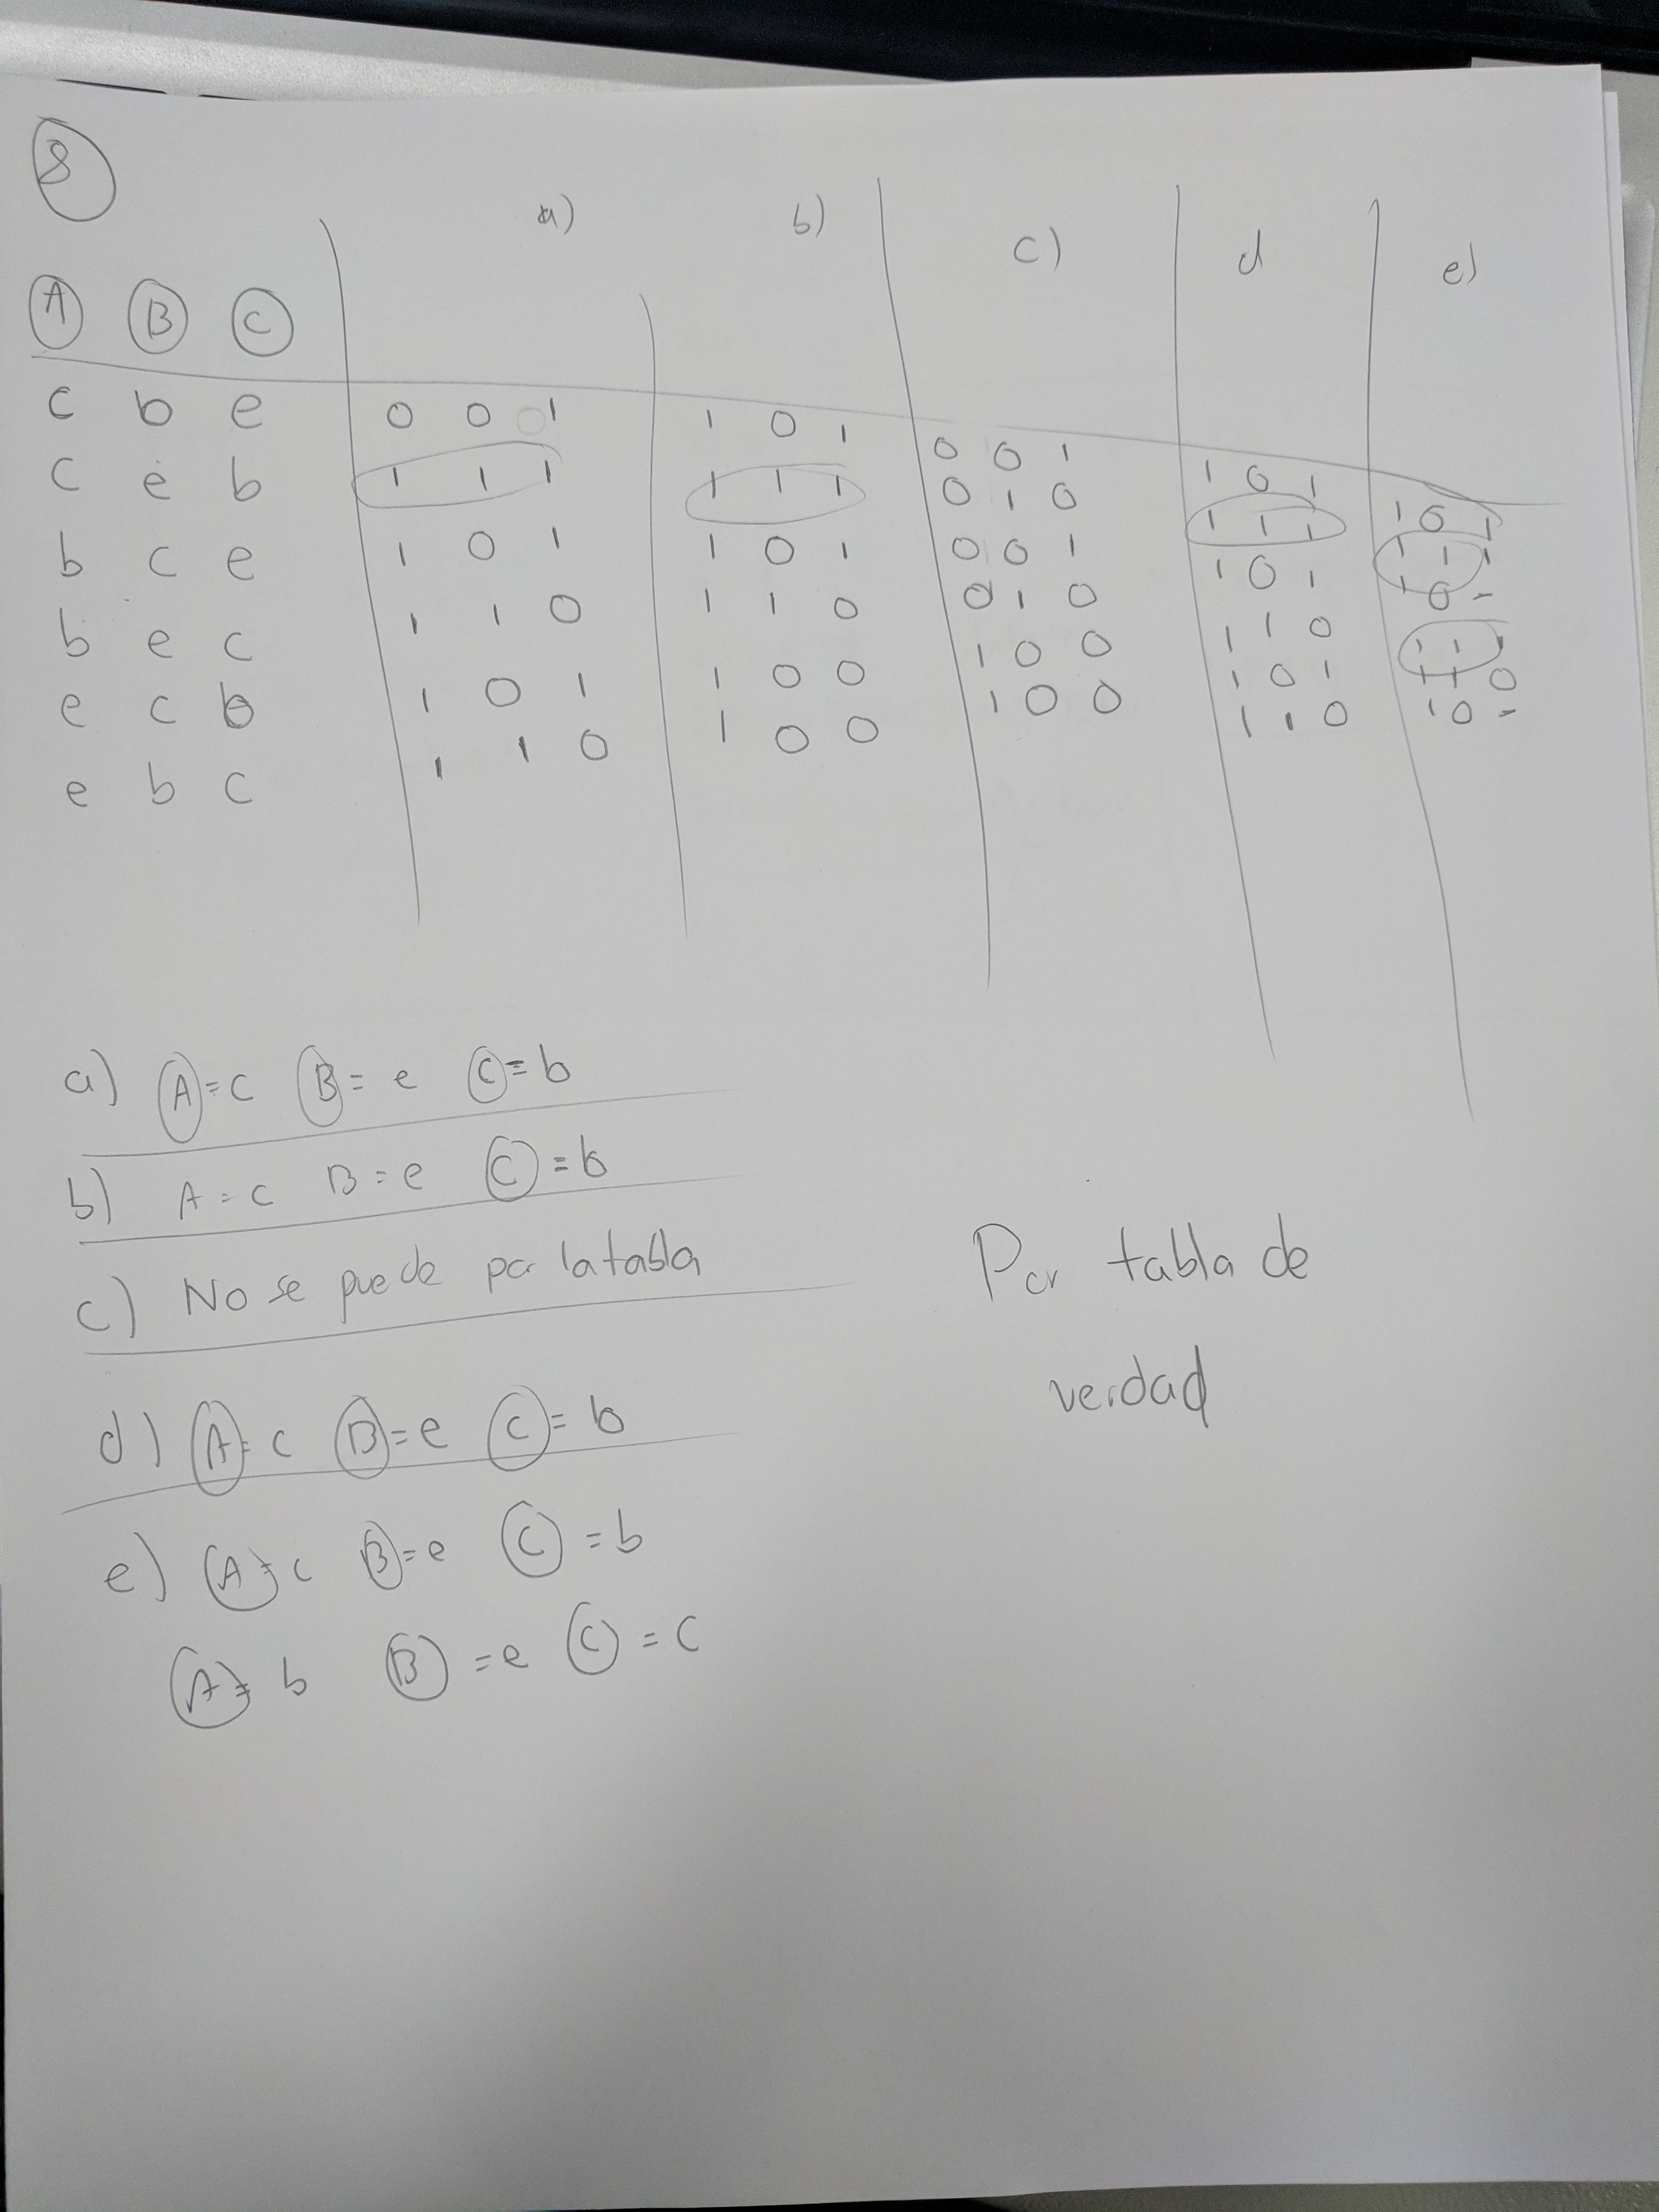 8
a) b) c) d e)
A B C
c b e 0 0 1 1 0 1 0 0 1 1 0 1 1 0 1
c e b 1 1 1 1 1 1 0 1 0 1 1 1 1 1 1
b c e 1 0 1 1 0 1 0 0 1 1 0 1 1 0 1
b e c 1 1 0 1 1 0 0 1 0 1 1 0 1 1 1
e c b 1 0 1 1 0 0 1 0 0 1 0 1 1 1 0
e b c 1 1 0 1 0 0 1 0 0 1 1 0 1 0 1
a) A = c B = e C = b
b) A = c B = e C = b
c) No se puede por la tabla
Por tabla de
verdad
d) A = c B = e C = b
e) A = c B = e C = b
A = b B = e C = c